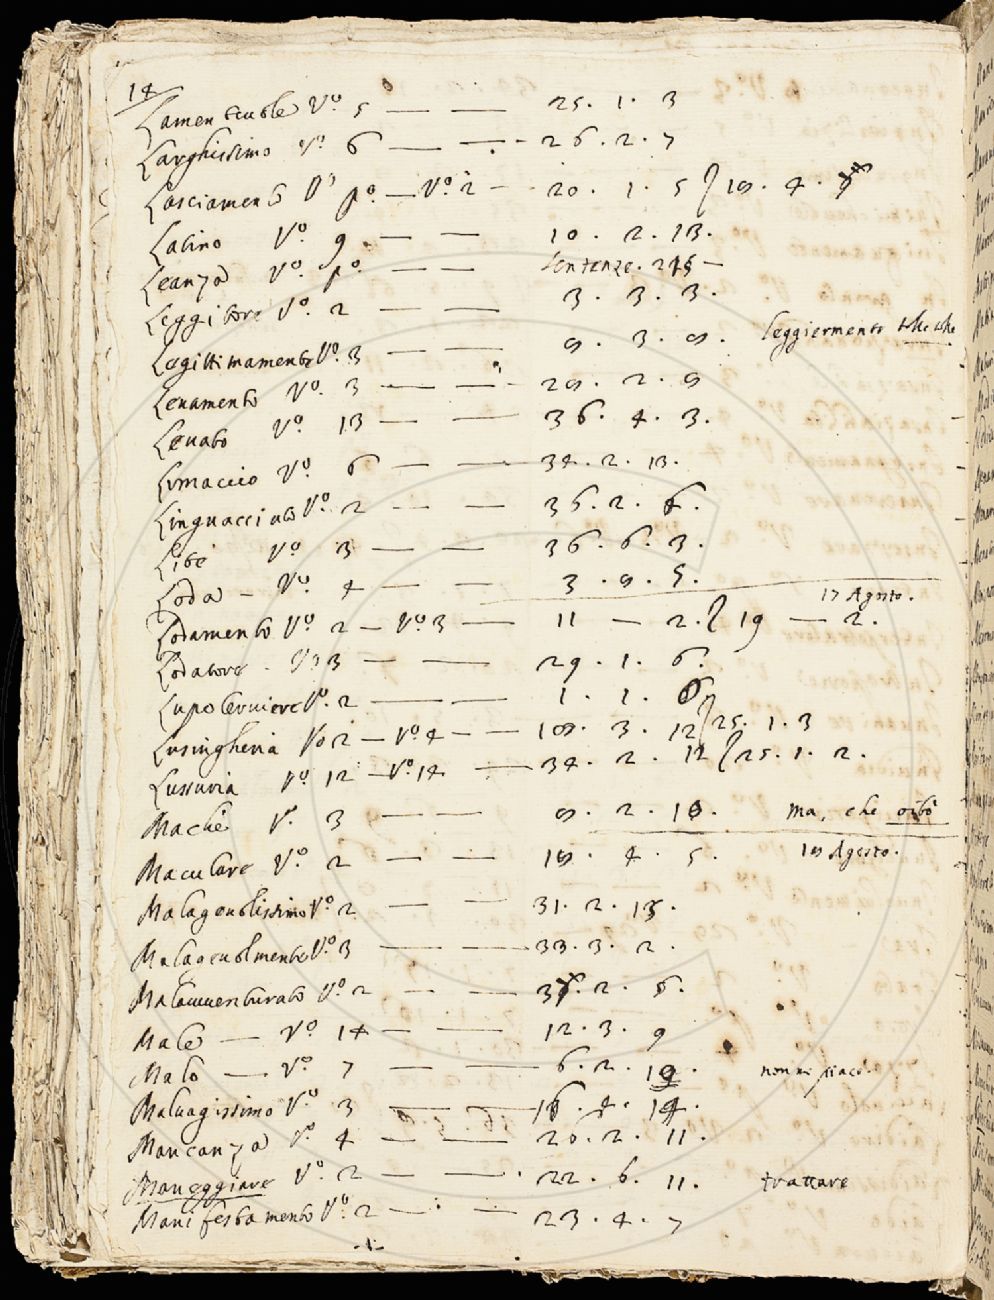 14
Lamentevole Vº 5 — — 25. 1. 3
Larghissimo Vº 6 — — 26. 2. 7
Lasciamento Vº pº — Vº 2 — 20. 1. 5 / 18. 4.
Latino Vº 9 — — 10. 2. 13.
Leanza Vº pº — — sentenze.
Leggitore Vº 2 — — 3. 3. 3.
Legittimamente Vº 3 — — 8. 3. 8. leggiermente
Levamento Vº 3 — — 28. 2. 8
Levato Vº 13 — — 36. 4. 3.
Limaccio Vº 6 — — 34. 2. 13.
Linguacciato Vº 2 — — 36. 2.
Vº 3 — — 36. 6. 3.
Loda — Vº 4 — — 3. 8. 5.
17 Agosto.
Lodamento Vº 2 — Vº 3 — 11 — 2. / 19 — 2.
Lodatore Vº 3 — — 29. 1. 6.
Lupo cerviere Vº 2 — — 1. 1. 6
Lusingheria Vº 2 — Vº 4 — — 18. 3. 12 / 25. 1. 3
Lussuria Vº 12 — Vº 14 — 34. 2. 12 / 25. 1. 2.
Machè Vº 3 — — 8. 2. ma, che oibò
18 Agosto.
Maculare Vº 2 — — 18. 4. 5.
Malagevolissimo Vº 2 — — 31. 2. 13.
Malagevolmente Vº 3 — — 33. 3. 2.
Malavventurato Vº 2 — — 2. 6.
Male — Vº 14 — — 12. 3. 9
Malo — Vº 7 — — 6. 2. 19. non mi piace.
Malvagissimo Vº 3 — 16. 4. 14.
Mancanza Vº 4 — — 26. 2. 11.
Maneggiare Vº 2 — — 22. 6. 11. trattare
Manifestamento Vº 2 — — 23. 4. 7